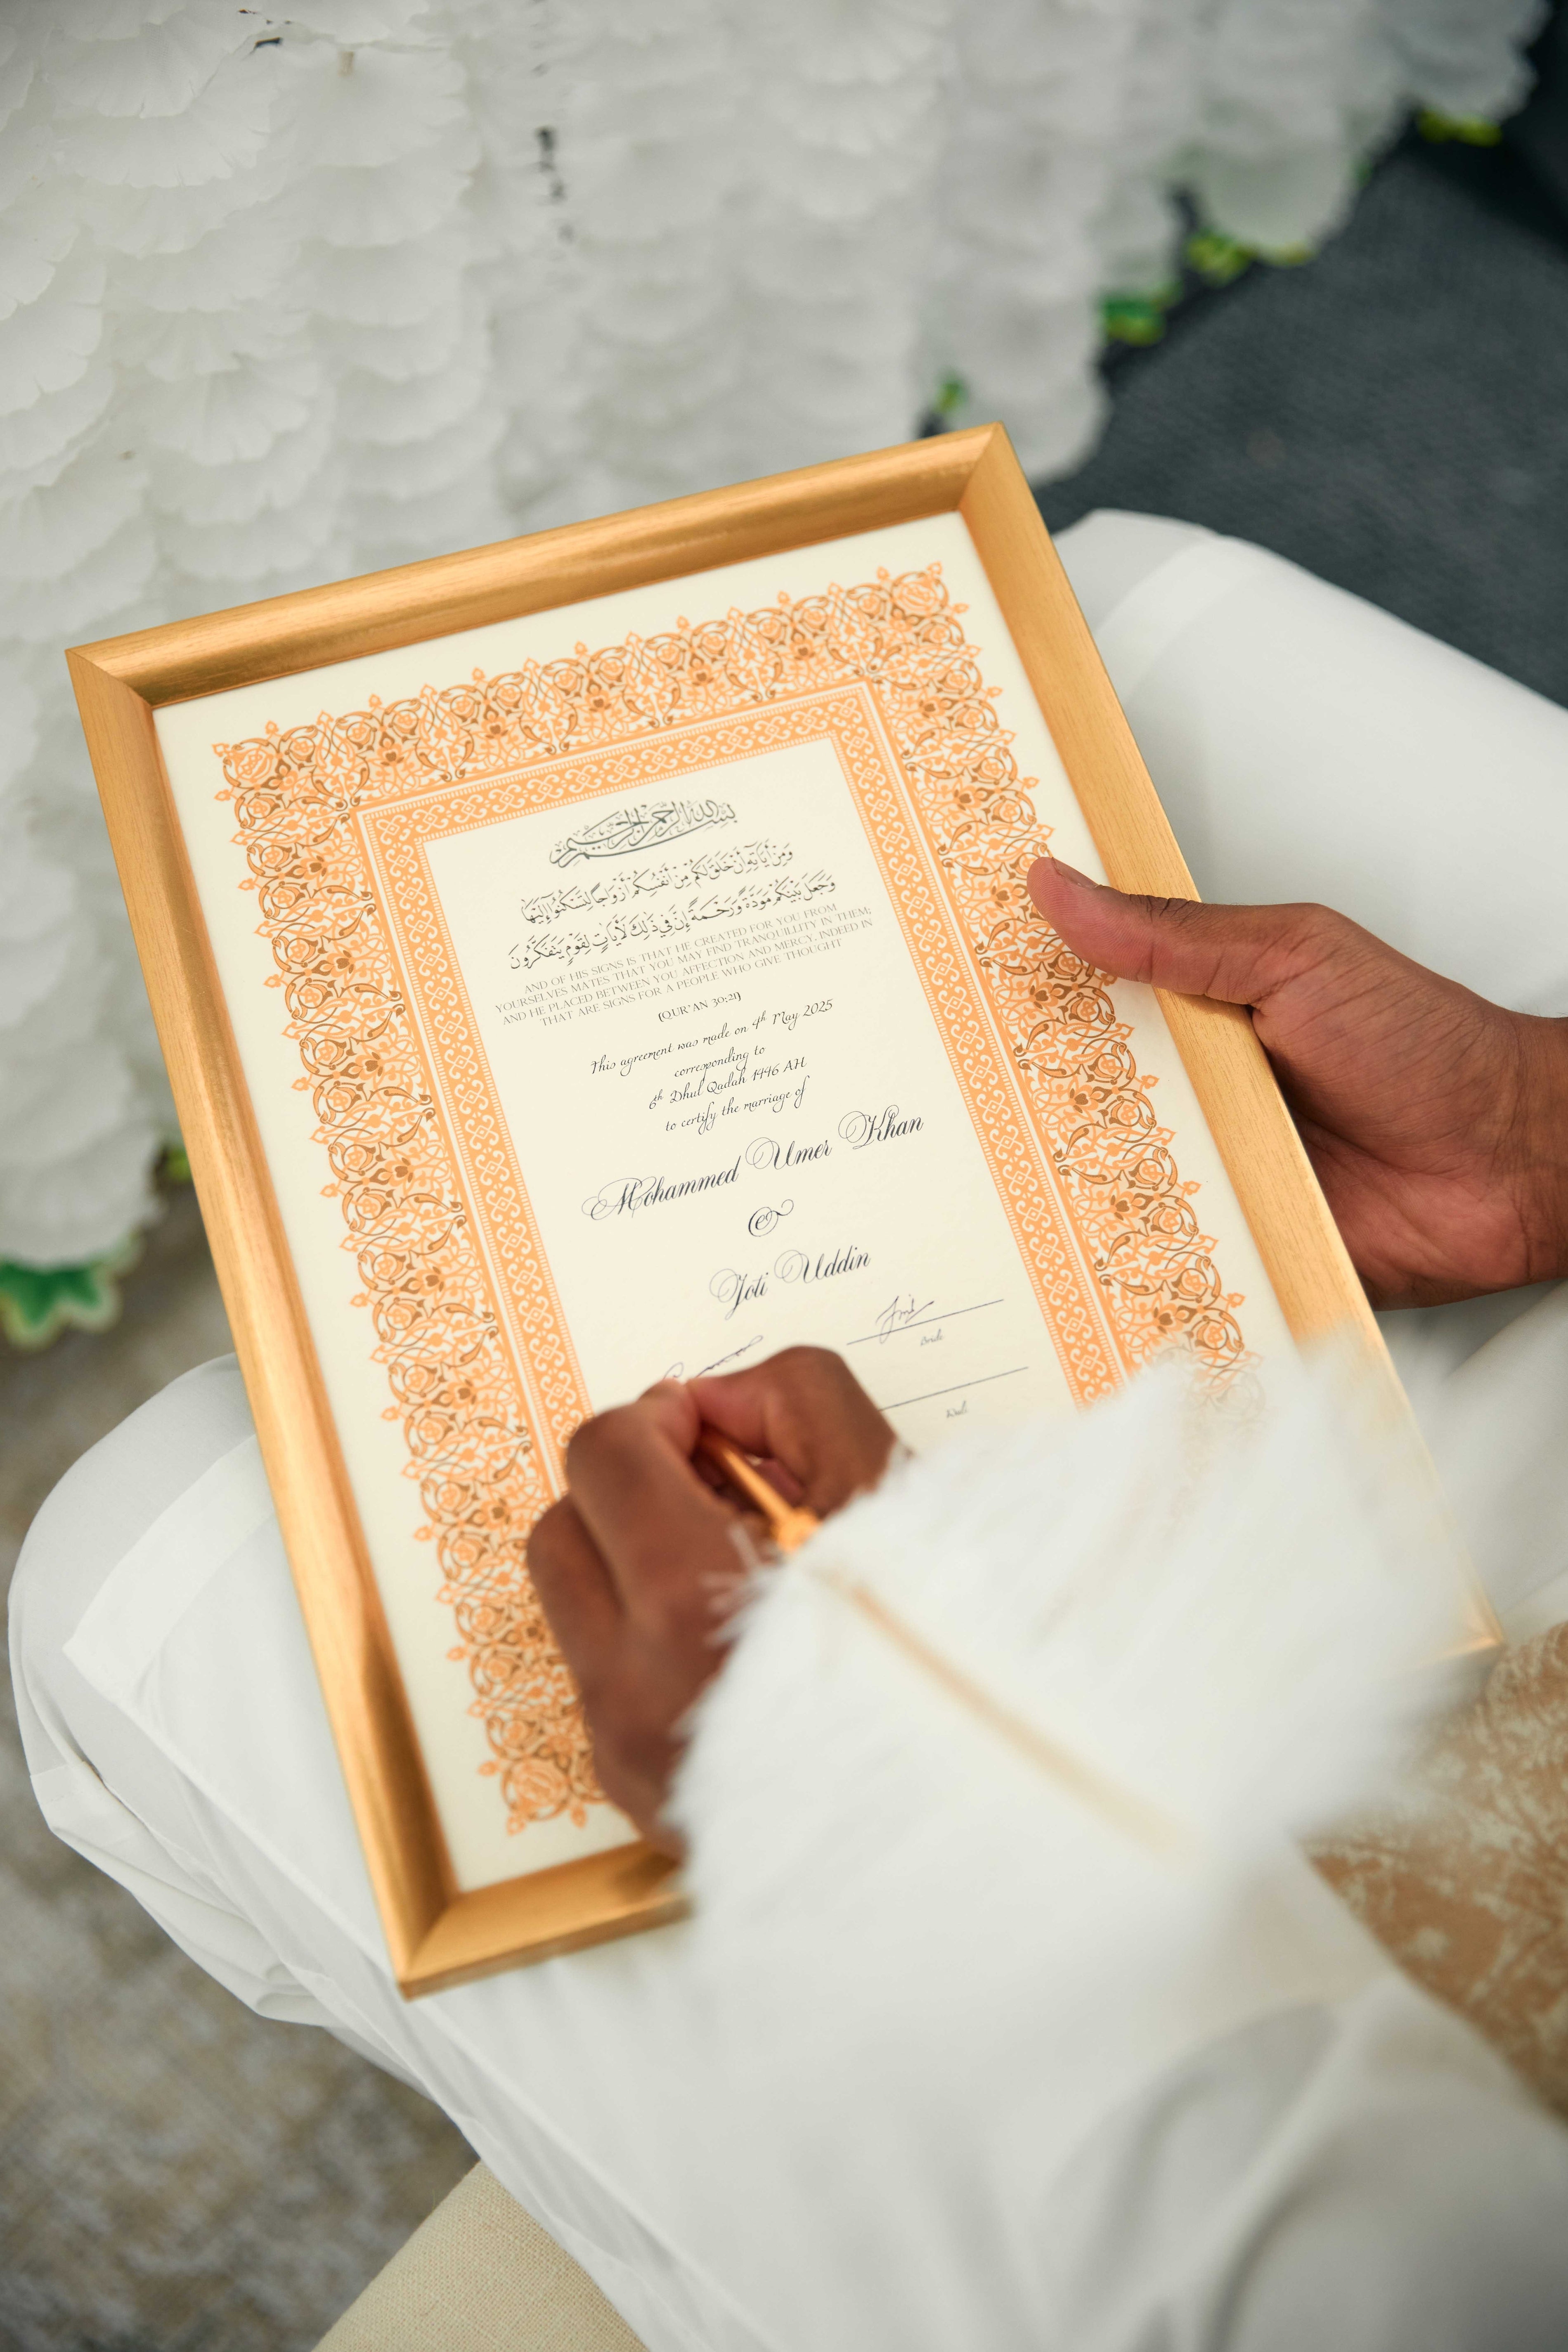 بسم الله الرحمن الرحيم
وَمِنْ آيَاتِهِ أَنْ خَلَقَ لَكُم مِّنْ أَنفُسِكُمْ أَزْوَاجًا لِّتَسْكُنُوا إِلَيْهَا
وَجَعَلَ بَيْنَكُم مَّوَدَّةً وَرَحْمَةً إِنَّ فِي ذَلِكَ لَآيَاتٍ لِّقَوْمٍ يَتَفَكَّرُونَ
AND OF HIS SIGNS IS THAT HE CREATED FOR YOU FROM
YOURSELVES MATES THAT YOU MAY FIND TRANQUILLITY IN THEM;
AND HE PLACED BETWEEN YOU AFFECTION AND MERCY. INDEED IN
THAT ARE SIGNS FOR A PEOPLE WHO GIVE THOUGHT
(QUR'AN 30:21)
This agreement was made on 4th May 2025
corresponding to
6th Dhul Qadah 1446 AH
to certify the marriage of
Mohammed Umer Khan
&
Joti Uddin
Bride
Wali